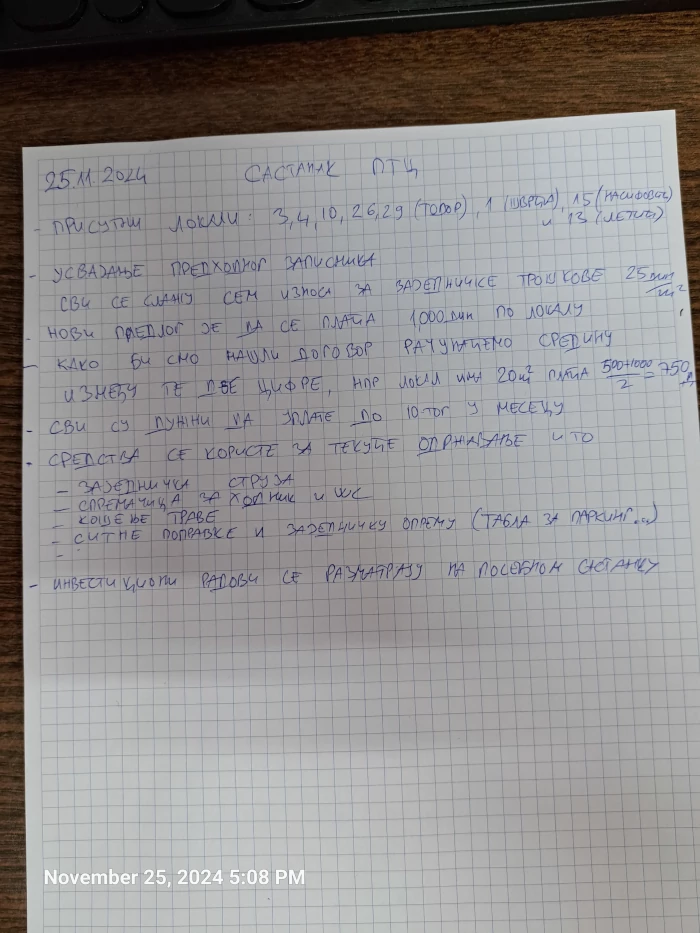 25.11.2024 САСТАНАК ПТЦ
- ПРИСУТНИ ЛОКАЛИ: 3, 4, 10, 26, 29 (ТОДОР), 1 (ШВРЋА), 15 (НАСИФОВИЋ)
и 13 (ЛЕТИЋ)
- УСВАЈАЊЕ ПРЕДХОДНОГ ЗАПИСНИКА
СВИ СЕ СЛАЖУ СЕМ ИЗНОСА ЗА ЗАЈЕДНИЧКЕ ТРОШКОВЕ 25 дин/м²
- НОВИ ПРЕДЛОГ ЈЕ ДА СЕ ПЛАЋА 1000 ДИН ПО ЛОКАЛУ
- КАКО БИ СМО НАШЛИ ДОГОВОР РАЧУНАЋЕМО СРЕДИНУ
ИЗМЕЂУ ТЕ ДВЕ ЦИФРЕ, НПР ЛОКАЛ ИМА 20м² ПЛАЋА (500+1000)/2 = 750 Д
- СВИ СУ ДУЖНИ ДА УПЛАТЕ ДО 10-ТОГ У МЕСЕЦУ
- СРЕДСТВА СЕ КОРИСТЕ ЗА ТЕКУЋЕ ОДРЖАВАЊЕ И ТО
- ЗАЈЕДНИЧКА СТРУЈА
- СПРЕМАЧИЦА ЗА ХОДНИК И WC
- КОШЕЊЕ ТРАВЕ
- СИТНЕ ПОПРАВКЕ И ЗАЈЕДНИЧКУ ОПРЕМУ (ТАБЛА ЗА ПАРКИНГ...)
-
- ИНВЕСТИЦИОНИ РАДОВИ СЕ РАЗМАТРАЈУ НА ПОСЕБНОМ САСТАНКУ
November 25, 2024 5:08 PM